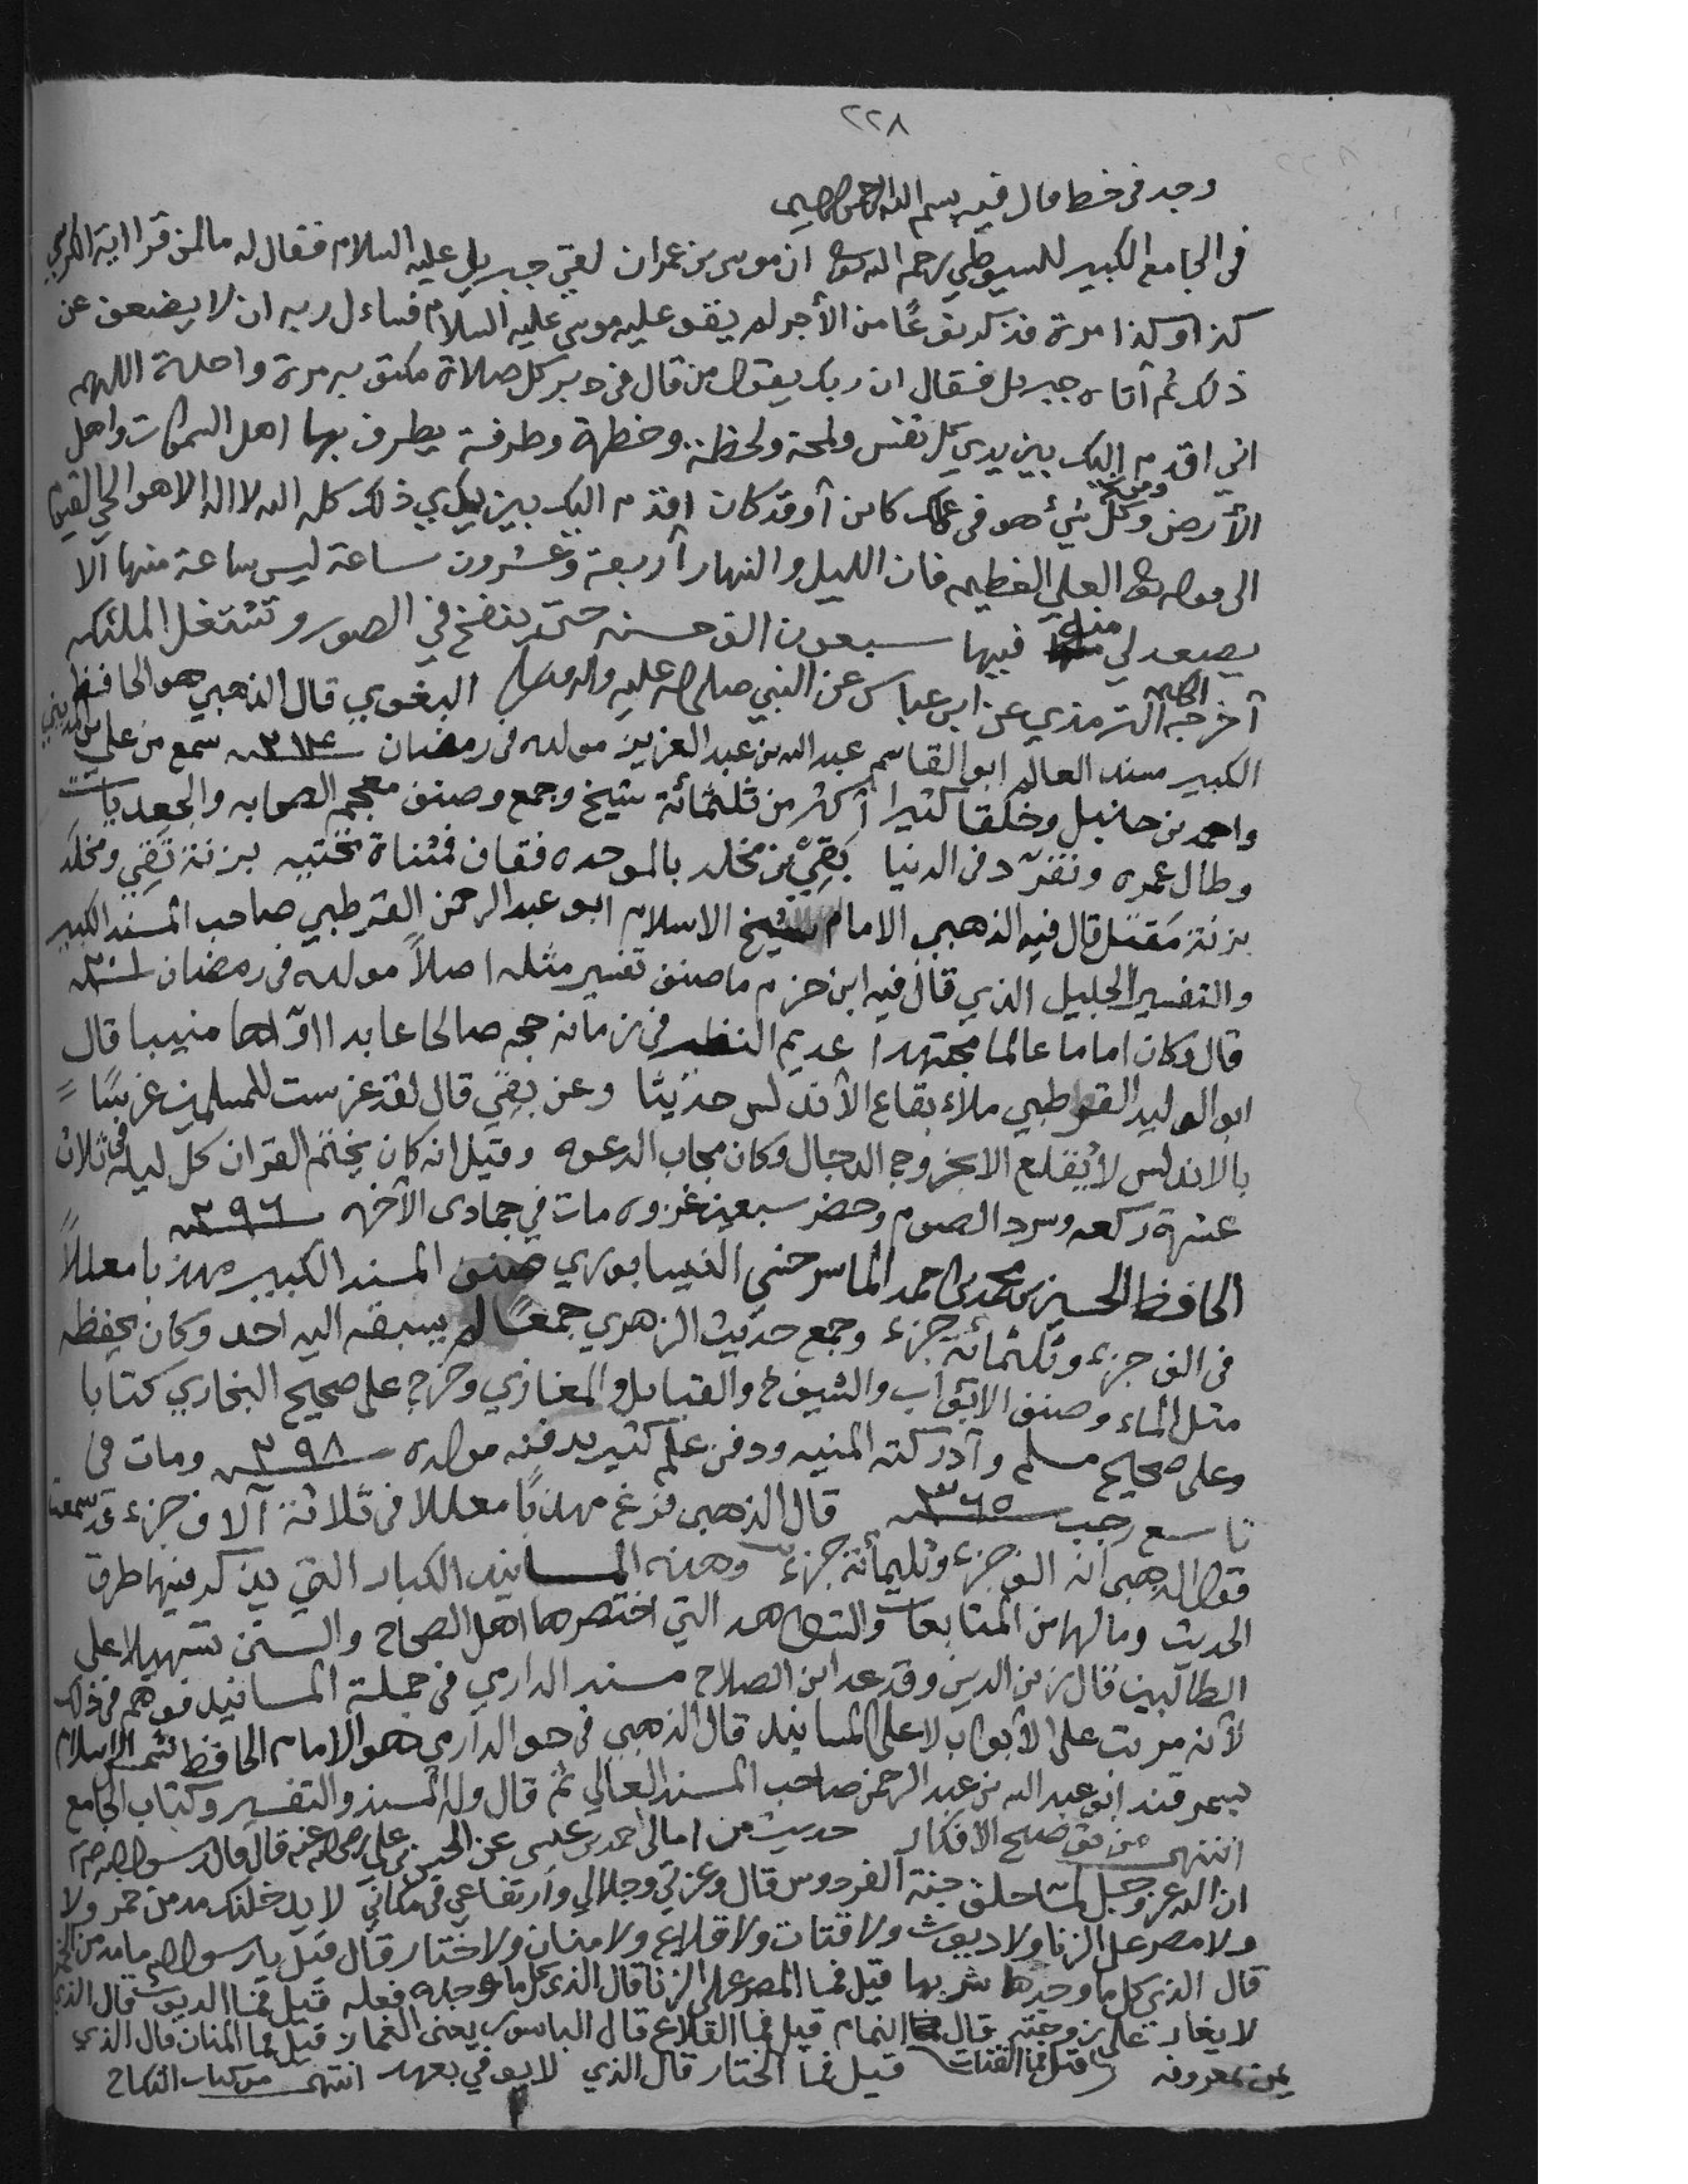 ٢٢٨
وجد في خط قال فيه بسم الله الرحمن الرحيم
في الجامع الكبير للسيوطي رحمه الله ان موسى بن عمران لقي جبريل عليه السلام فقال له ما لمن قرا اية الكرسي
كذا وكذا مرة فذكر نوعًا من الأجر لم يقو عليه موسى عليه السلام فساءل ربه ان لا يضعف عن
ذلك ثم أتاه جبريل فقال ان ربك يقول من قال في دبر كل صلاة مكتوبه مرة واحدة اللهم
اني اقدم اليك بين يدي كل نفس ولمحة ولحظة وخطرة وطرفة يطرف بها اهل السموات واهل
الأرض وكل شيء هو في علمك كائن أو قد كان اقدم اليك بين يدي ذلك كله الله لا اله الا هو الحي القيوم
الى قوله العلي العظيم فان الليل والنهار أربعة وعشرون ساعة ليس ساعة منها الا
يصعد لي منه فيها سبعون الف حسنه حتى ينفخ في الصور وتشتغل الملئكه
أخرجه الحكيم الترمذي عن ابن عباس عن النبي صلى الله عليه واله وسلم البغوي قال الذهبي هو الحافظ
الكبير مسند العالم ابو القاسم عبد الله بن عبد العزيز مولده في رمضان سنه ٢١٤ سمع من علي بن المديني
واحمد بن حنبل وخلقا كثيرا أكثر من ثلثمائة شيخ وجمع وصنف معجم الصحابه والجعديات
وطال عمره وتفرّد في الدنيا بَقِيّ بن مخلد بالموحده فقاف فمثناة تحتيه بزنة تَقِي ومخلَد
بزنة مَقتَل قال فيه الذهبي الامام شيخ الاسلام ابو عبد الرحمن القرطبي صاحب المسند الكبير
والتفسير الجليل الذي قال فيه ابن حزم ما صنف تفسير مثله اصلاً مولده في رمضان سنه ٢٠١
قال وكان اماما عالما مجتهدا عديم النظير في زمانه حجه صالحا عابدا اوّاها منيبا قال
ابو الوليد القرطبي ملاء بقاع الأندلس حديثا وعن بقي قال لقد غرست للمسلمين غرسًا
بالاندلس لا يقلع الا بخروج الدجال وكان مجاب الدعوه وقيل انه كان يختم القران كل ليله في ثلاث
عشرة ركعه وسرد الصوم وحضر سبعين غزوه مات في جمادى الآخره سنه ٢٩٦
الحافظ الحسين بن محمد بن احمد الماسرجسي النيسابوري صنف المسند الكبير مهذبا معللاً
في الف جزء وثلثمائة جزء وجمع حديث الزهري جمعًا لم يسبقه اليه احد وكان يحفظه
مثل الماء وصنف الابواب والشيوخ والقبائل والمغازي وخرج على صحيح البخاري كتابا
وعلى صحيح مسلم وأدركته المنيه ودفن علم كثير بدفنه مولده سنه ٢٩٨ ومات في
تاسع رجب سنه ٣٦٥ قال الذهبي فرغ مهذبًا معللا في ثلاثة آلاف جزء قد سمعت
قول الذهبي انه الف جزء وثلثمائة جزء وهذه المسانيد الكبار التي يذكر فيها طرق
الحديث وما لها من المتابعات والشواهد التي اختصرها اهل الصحاح والسنن تسهيلا على
الطالبين قال زين الدين وقد عد ابن الصلاح مسند الدارمي في جملة المسانيد فوهم في ذلك
لأنه مرتب على الأبواب لا على المسانيد قال الذهبي في هو الدارمي هو الامام الحافظ شيخ الاسلام
بسمرقند ابو عبد الله بن عبد الرحمن صاحب المسند العالي ثم قال وله المسند والتفسير وكتاب الجامع
انتهى من توضيح الافكار حديث من امالي احمد بن عيسى عن الحسين بن علي رضي الله عنه قال قال رسول الله
ان الله عز وجل لما خلق جنة الفردوس قال وعزتي وجلالي وارتفاعي في مكاني لا يدخلنك مدمن خمر ولا
ولا مصر على الزنا ولا ديوث ولا قتات ولا قلاع ولا منان ولا ختار قال قيل يا رسول الله ما مدمن الخمر
قال الذي كل ما وجدها شربها قيل فما المصر على الزنا قال الذي كل ما وجده فعله قيل فما الديوث قال الذي
لا يغار على زوجته قيل فما القتات قال النمام قيل فما القلاع قال الباسور يعني الغماز قيل فما المنان قال الذي
يمن بمعروفه قيل فما الختار قال الذي لا يوفي بعهد انتهى من كتاب النكاح